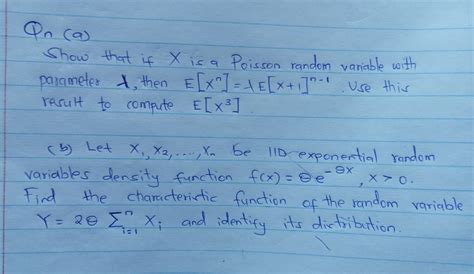 Qn (a)
Show that if X is a Poisson random variable with
parameter λ, then E[X^n] = λE[X+1]^{n-1}. Use this
result to compute E[X^3]
(b) Let X₁, X₂, ..., Xₙ be IID exponential random
variables density function f(x) = θe^{-θx}, x > 0.
Find the characteristic function of the random variable
Y = 2θ Σ_{i=1}^{n} Xᵢ and identify its distribution.